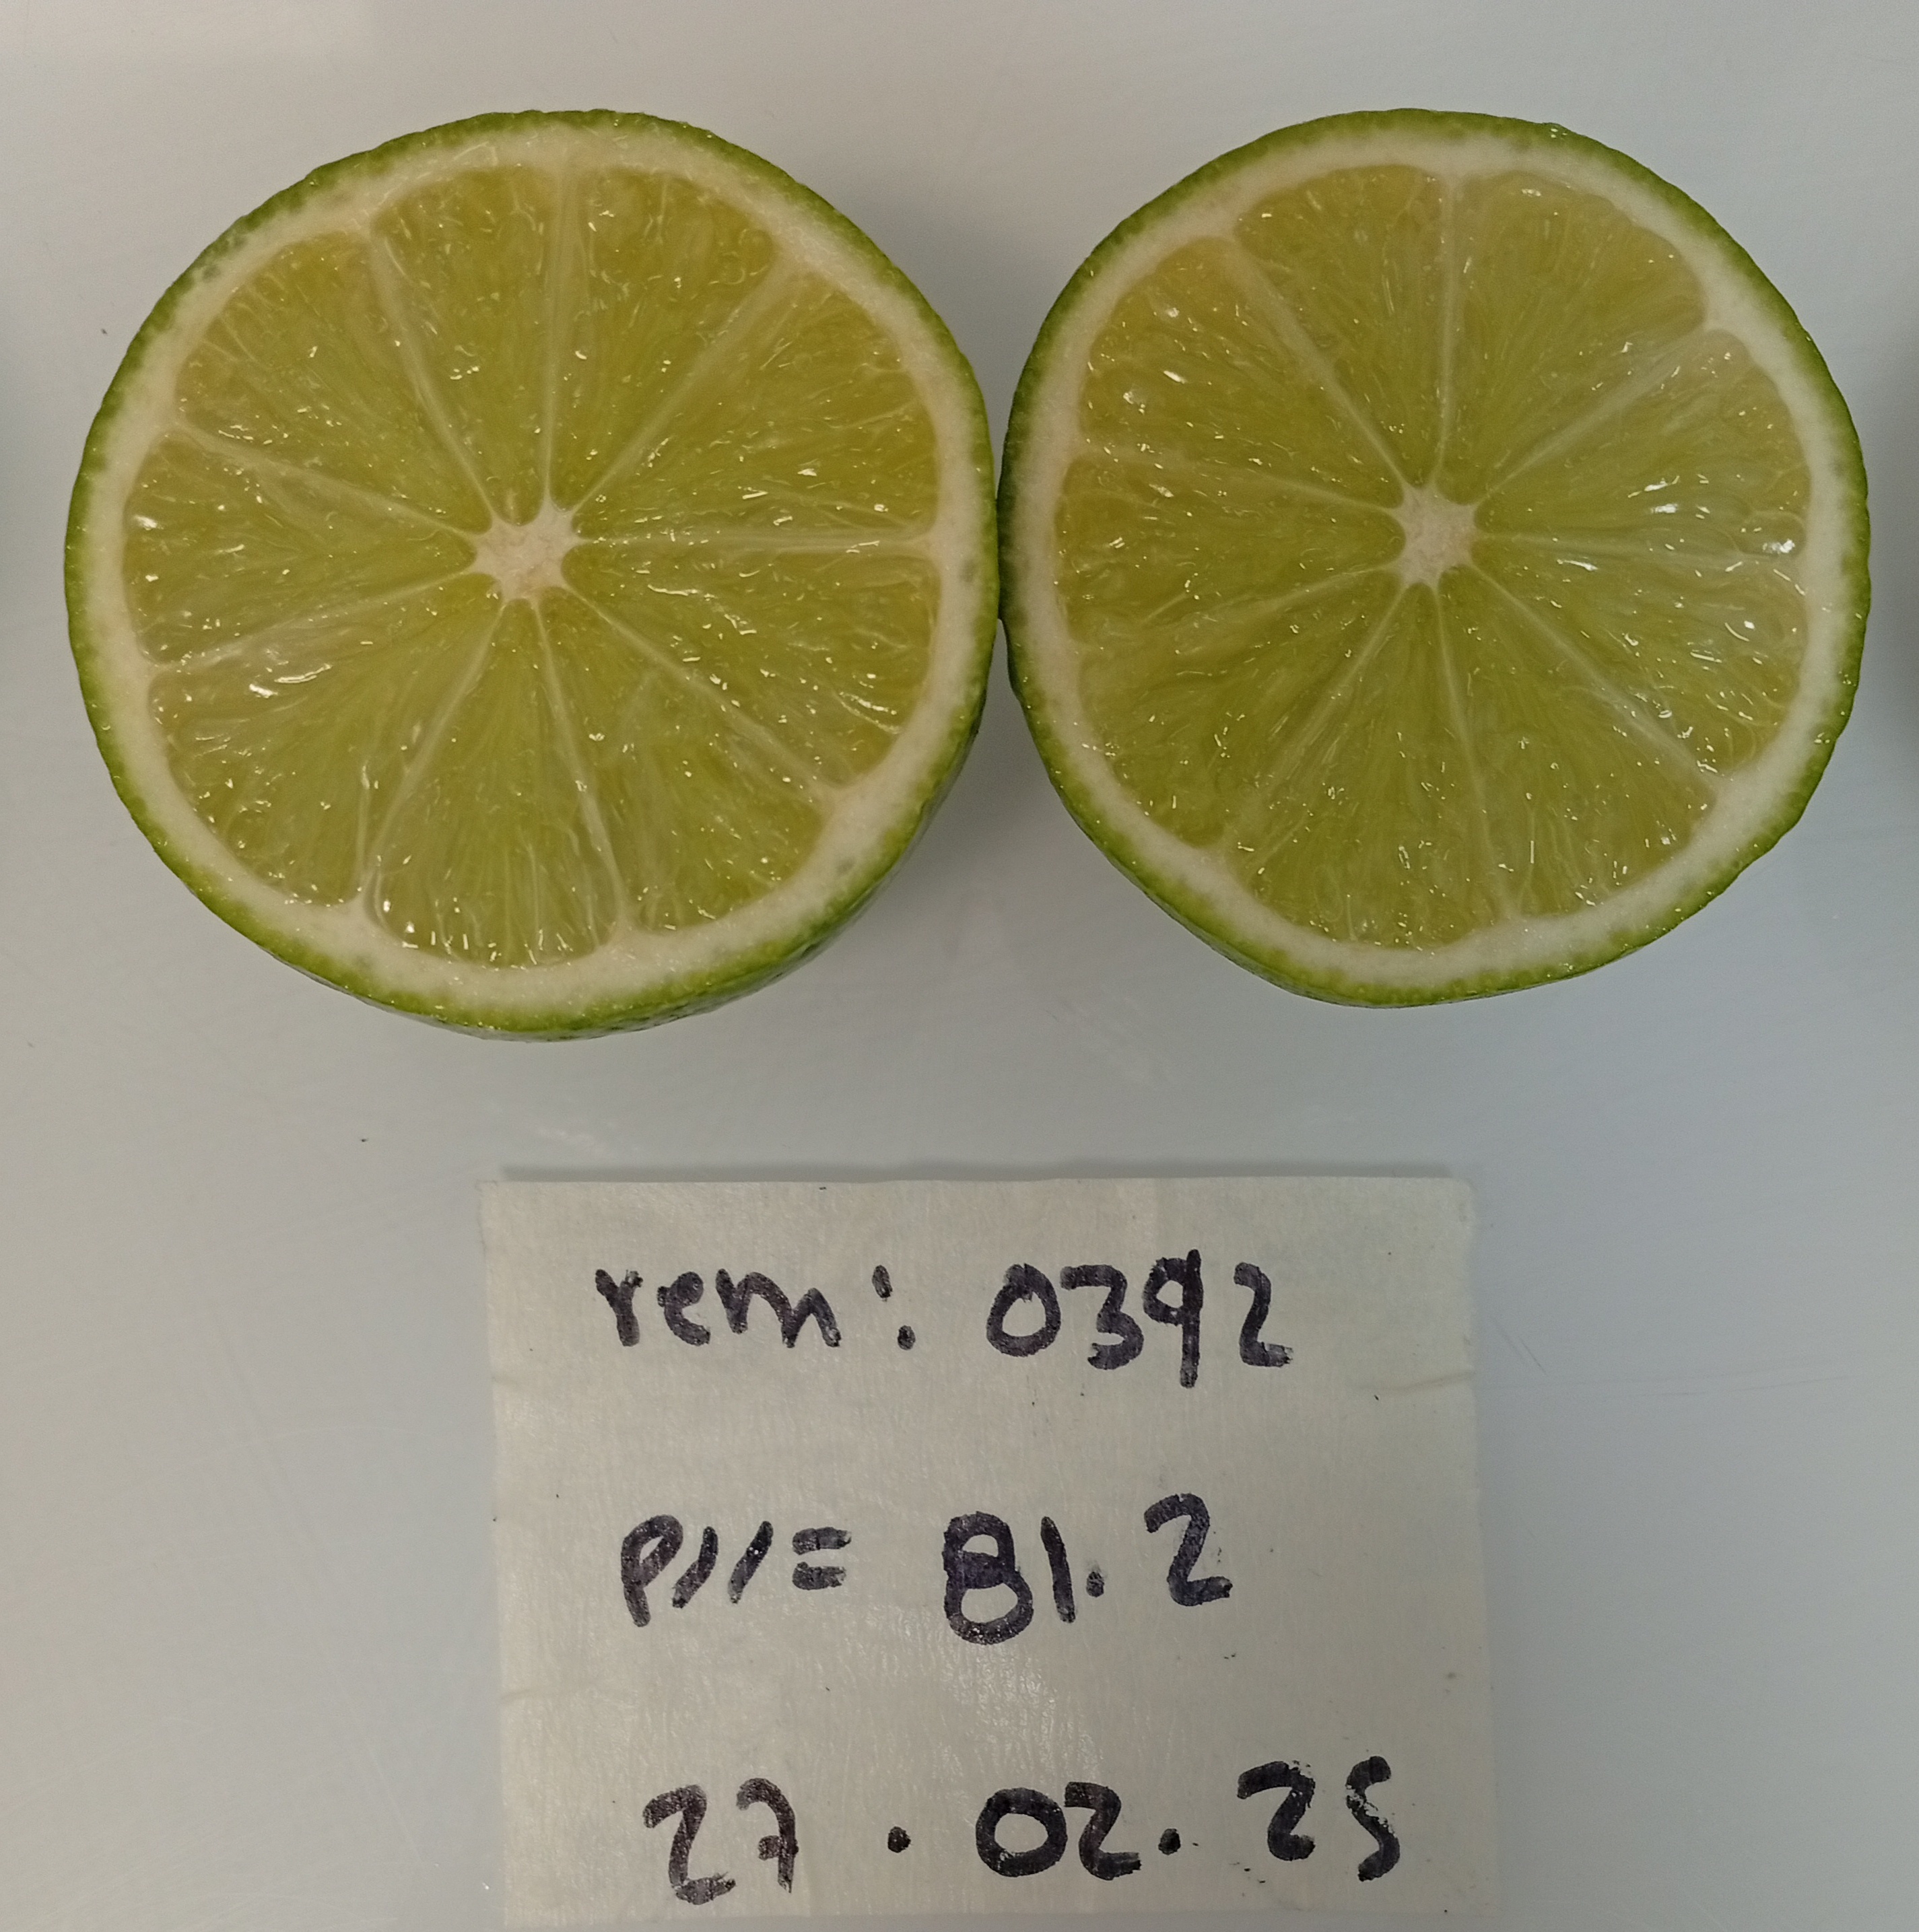 rem: 0392
P11= 81.2
27.02.25